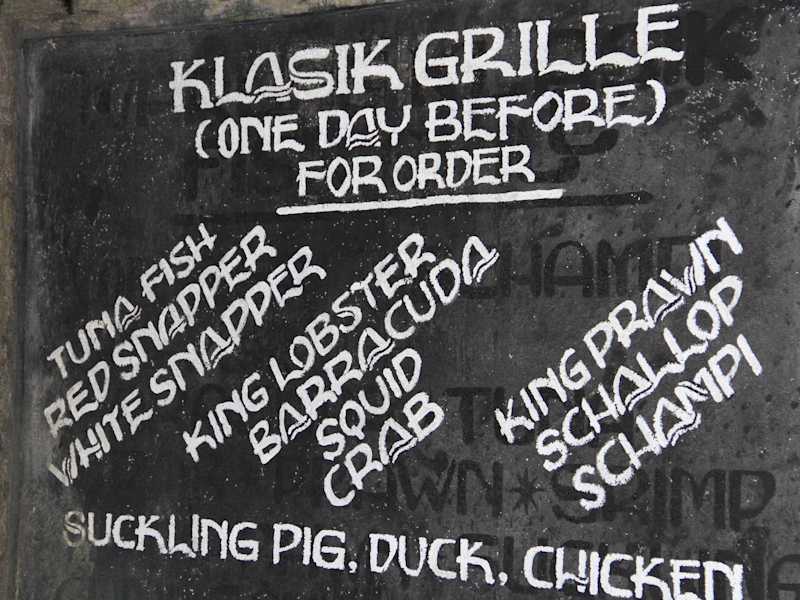 KLASIK GRILLE
(ONE DAY BEFORE)
FOR ORDER
TUNA FISH
RED SNAPPER
WHITE SNAPPER
KING LOBSTER
BARRACUDA
SQUID
CRAB
KING PRAWN
SCHALLOP
SCHAMPI
SUCKLING PIG, DUCK, CHICKEN